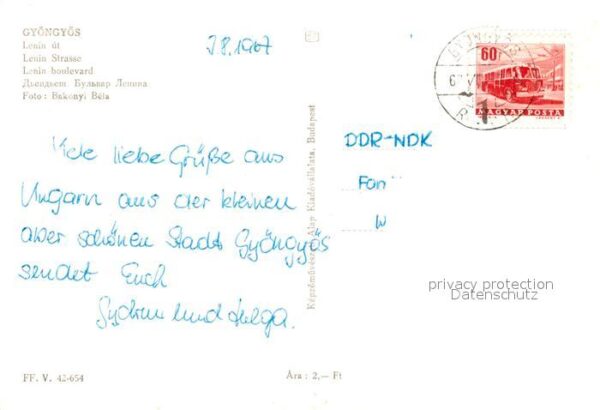 GYÖNGYÖS
Lenin út
Lenin Strasse
Lenin boulevard
Дьендьеш Бульвар Ленина
Foto: Bakonyi Béla
J.8.1967
Viele liebe Grüße aus
Ungarn aus der kleinen
aber schönen Stadt Gyöngyös
sendet Euch
und Helga.
FF. V. 42-654
Ára: 2,— Ft
Képzőművészeti Alap Kiadóvállalata, Budapest
GYÖNGYÖS
60f
MAGYAR POSTA
DDR-NDK
Fan
W
privacy protection
Datenschutz